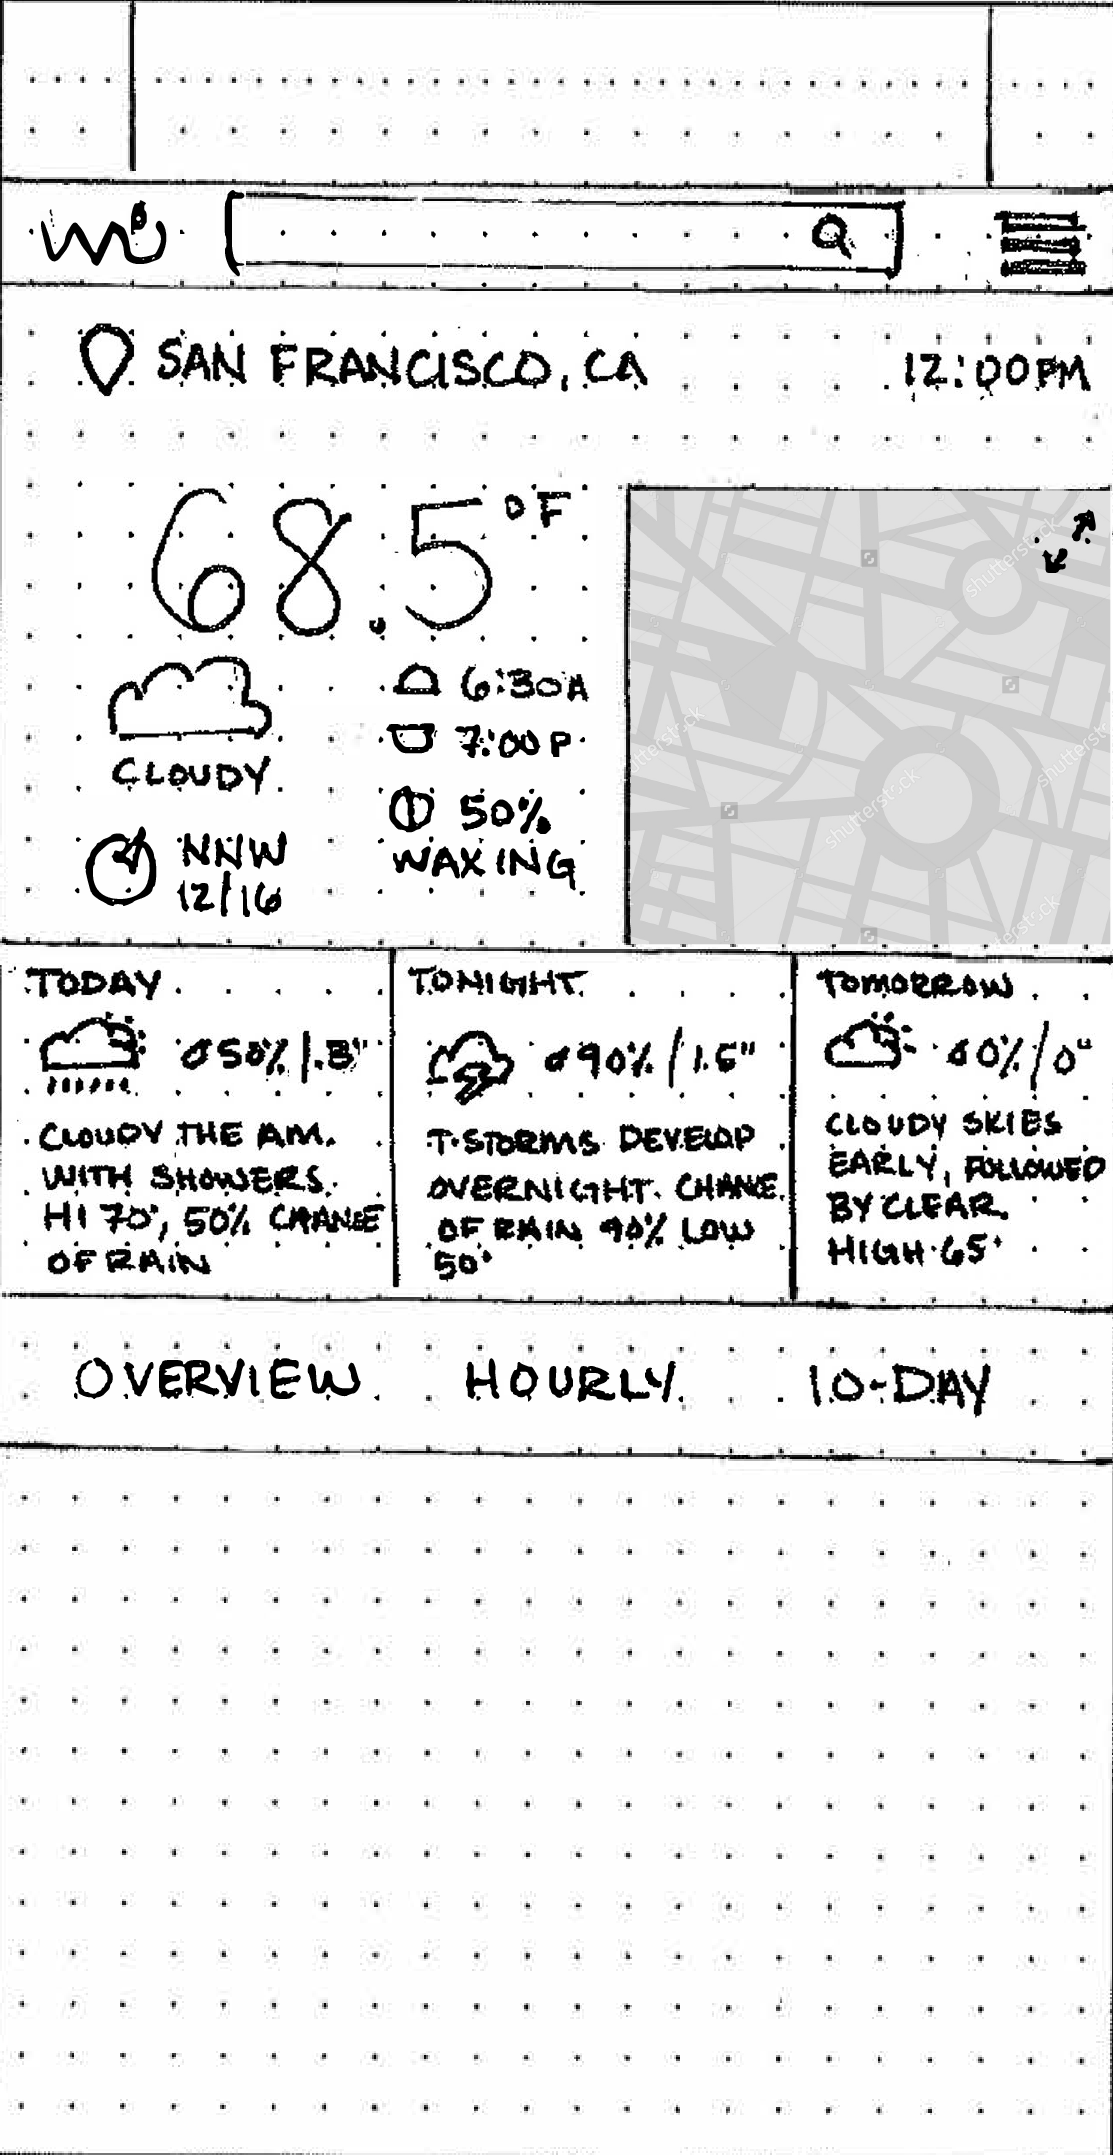 SAN FRANCISCO, CA
12:00PM
68.5°F
6:30A
7:00P
CLOUDY
50%
WAXING
NNW
12/16
TODAY
50%/.3"
CLOUDY THE AM.
WITH SHOWERS.
HI 70°, 50% CHANCE
OF RAIN
TONIGHT
90%/1.5"
T-STORMS DEVELOP
OVERNIGHT. CHANCE
OF RAIN 90% LOW
50°
TOMORROW
0%/0"
CLOUDY SKIES
EARLY, FOLLOWED
BY CLEAR.
HIGH 65°
OVERVIEW HOURLY 10-DAY
shutterstock
shutterstock
shutterstock
shutterstock